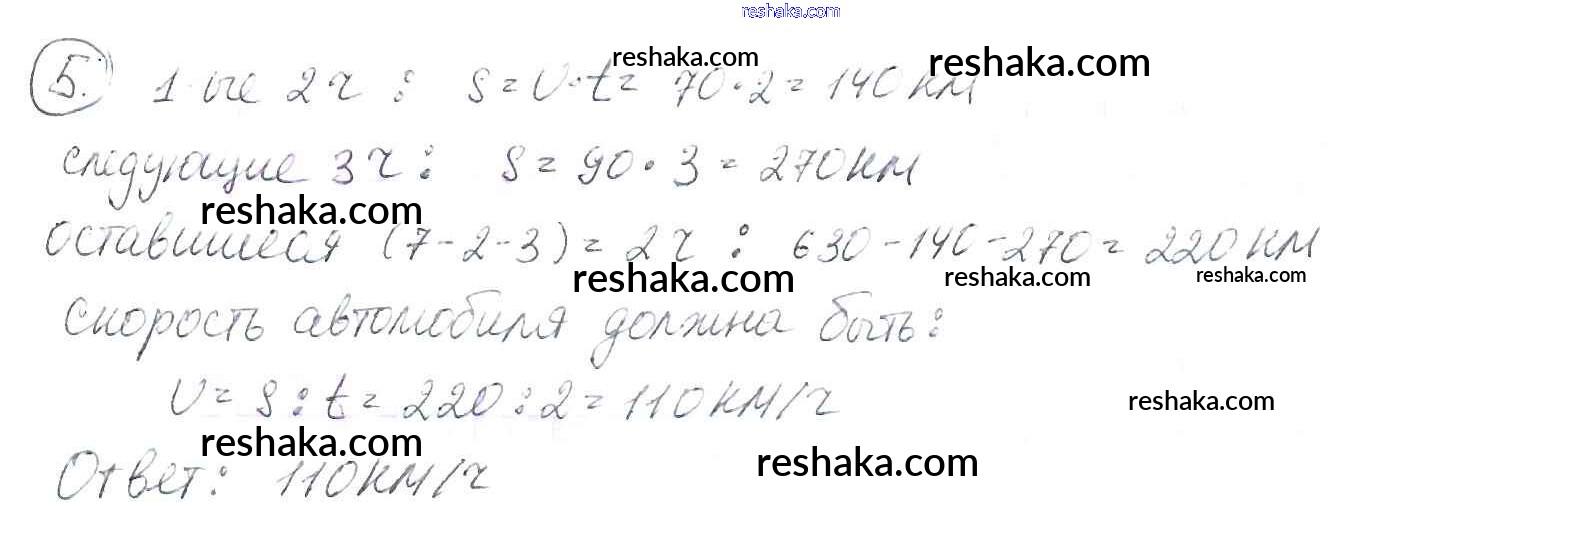 reshaka.com
5. 1-ые 2 ч : S = V·t = 70·2 = 140 км
reshaka.com reshaka.com
следующие 3 ч : S = 90·3 = 270 км
reshaka.com
оставшиеся (7-2-3) = 2 ч : 630-140-270 = 220 км
reshaka.com reshaka.com reshaka.com
скорость автомобиля должна быть:
V = S : t = 220 : 2 = 110 км/ч
reshaka.com
reshaka.com reshaka.com
Ответ: 110 км/ч